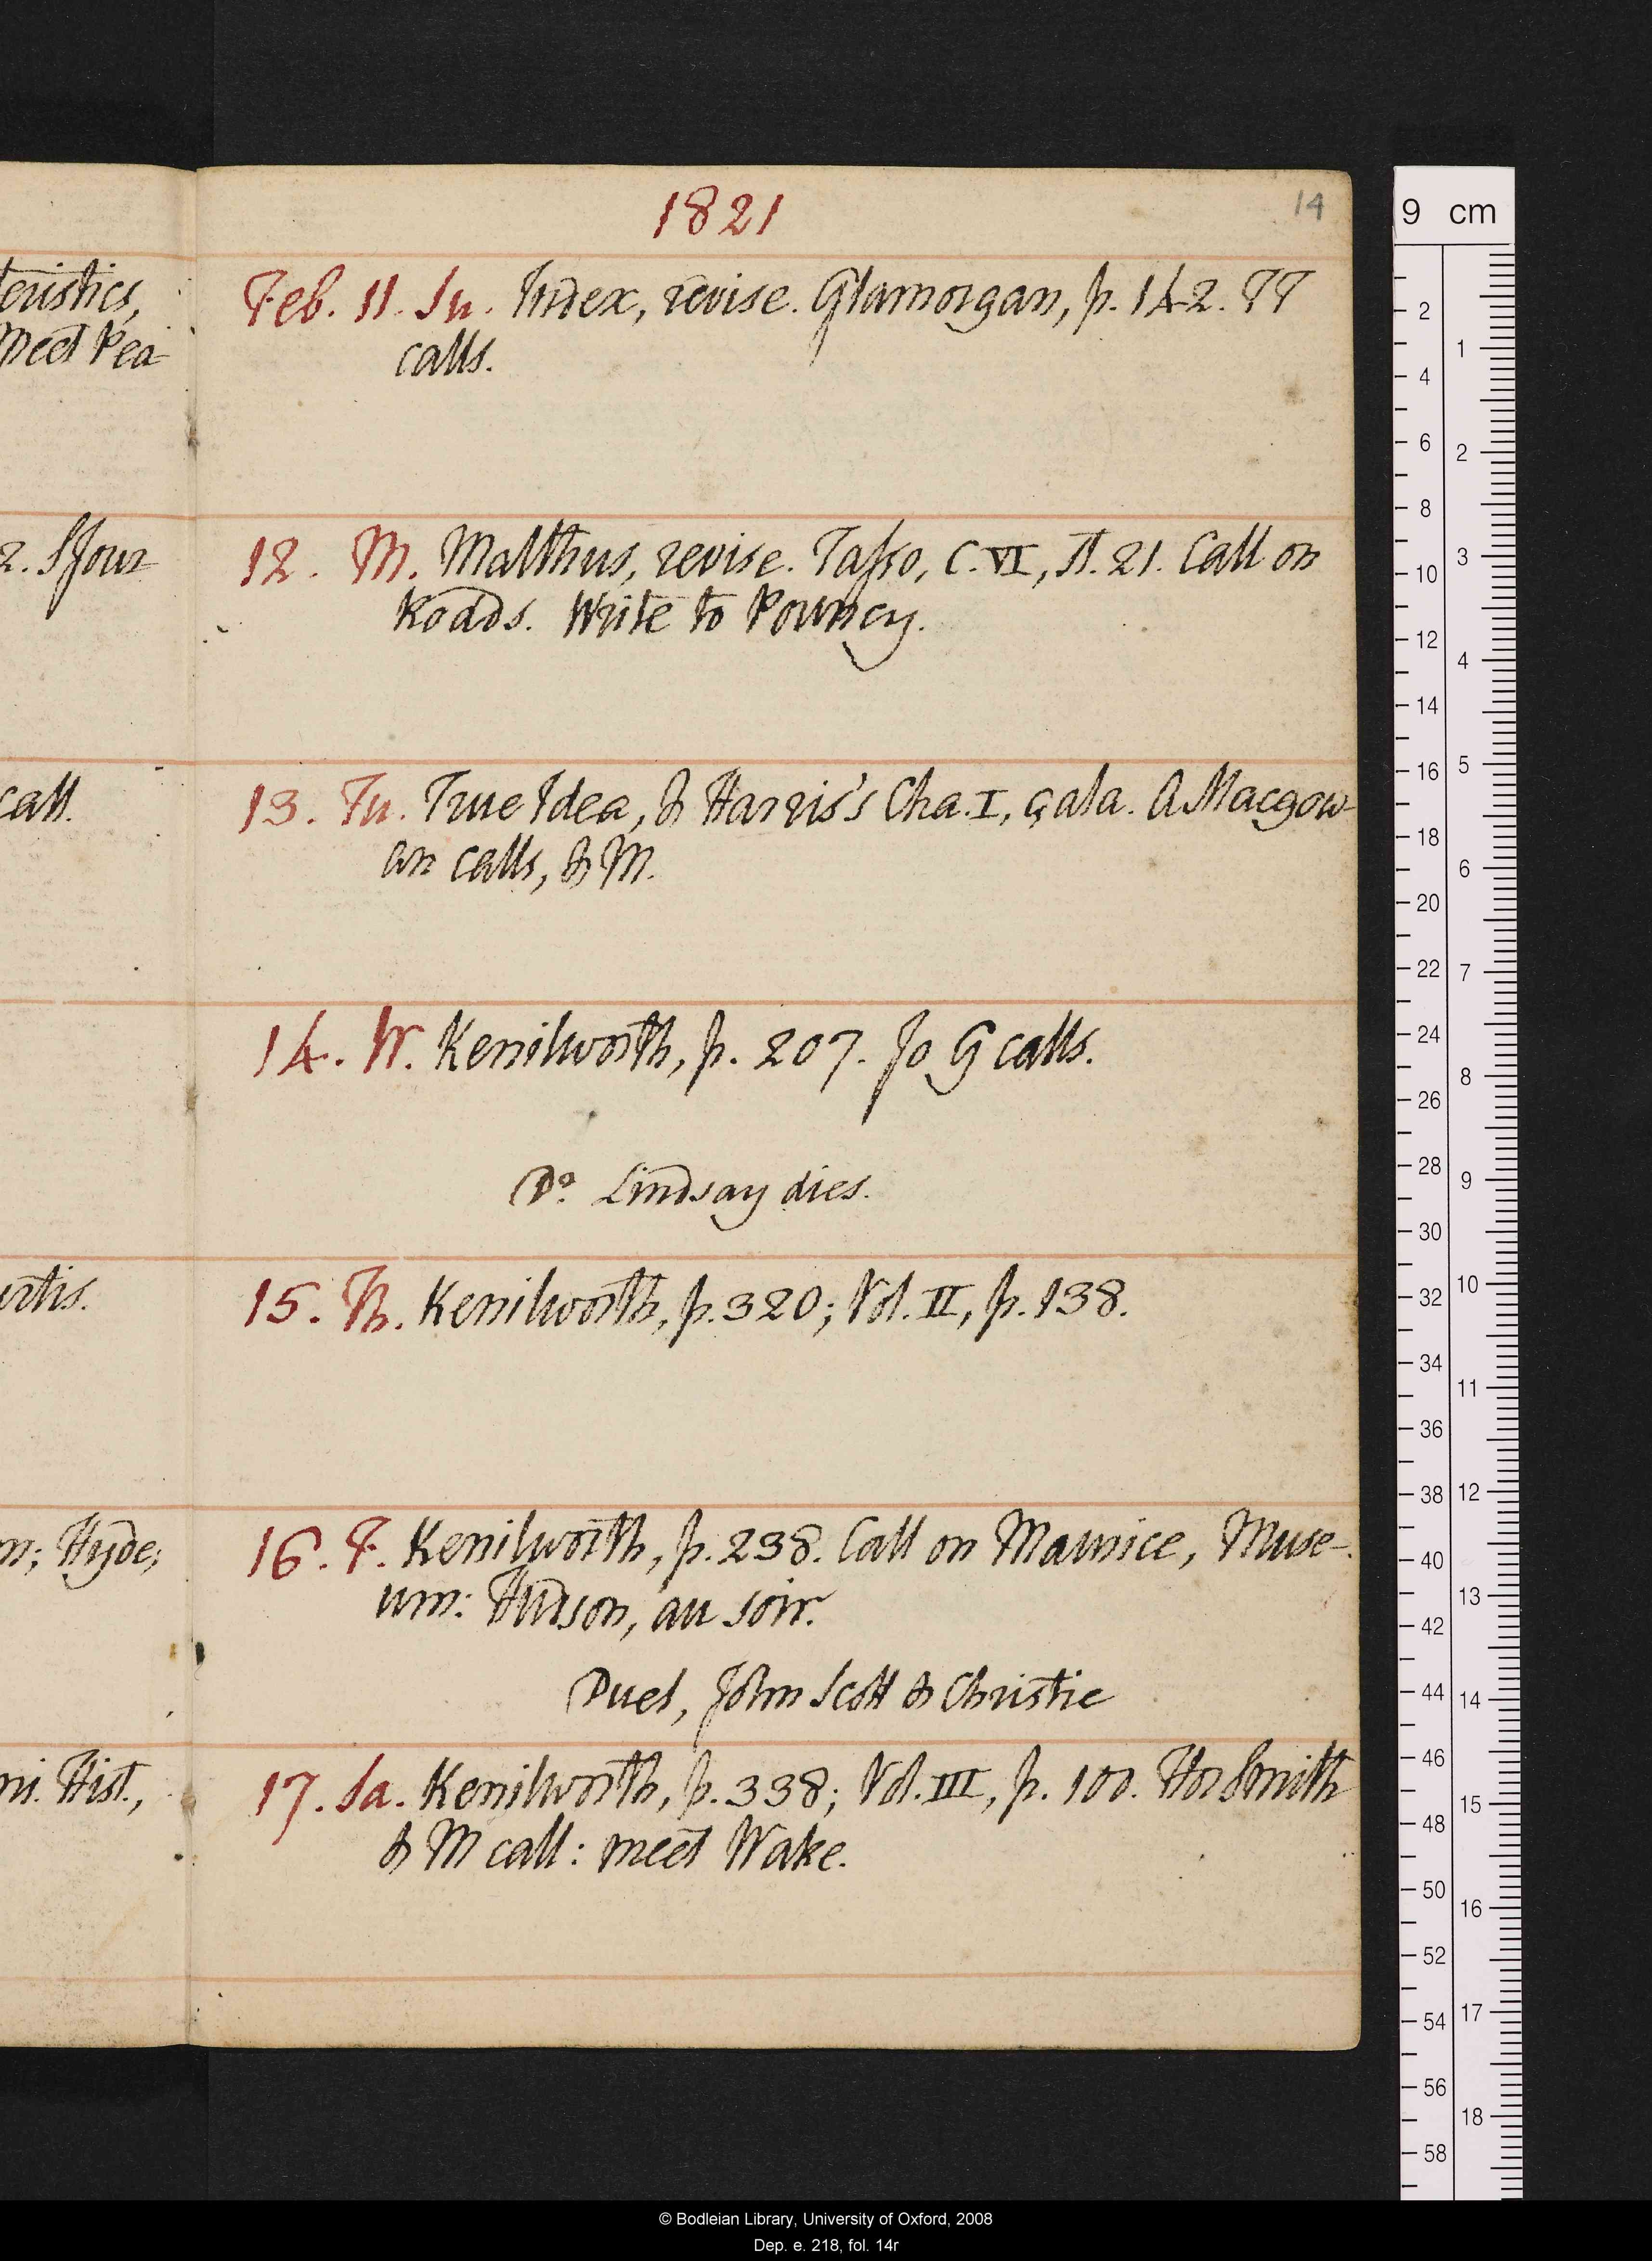 1821
14
teristics,
Meet Pea-
Feb. 11. Su. Index, revise. Glamorgan, p. 142. FF
calls.
2. S Jour
12. M. Malthus, revise. Tasso, C. VI, st. 21. Call on
Kodds. Write to Pouncy.
call.
13. Tu. True Idea, & Harris's Cha. I, çala. A Macgow-
an calls, & M.
14. W. Kenilworth, p. 207. Jo G calls.
Do. Lindsay dies.
urtis.
15. Th. Kenilworth, p. 320; Vol. II, p. 138.
n; Hyde;
16. F. Kenilworth, p. 238. Call on Maurice, Muse-
um: Hudson, au soir.
Duel, John Scott & Christie
ni. Hist.,
17. Sa. Kenilworth, p. 338; Vol. III, p. 100. Hor Smith
& M call: meet Wake.
9 cm
2
4
6
8
10
12
14
16
18
20
22
24
26
28
30
32
34
36
38
40
42
44
46
48
50
52
54
56
58
1
2
3
4
5
6
7
8
9
10
11
12
13
14
15
16
17
18
© Bodleian Library, University of Oxford, 2008
Dep. e. 218, fol. 14r